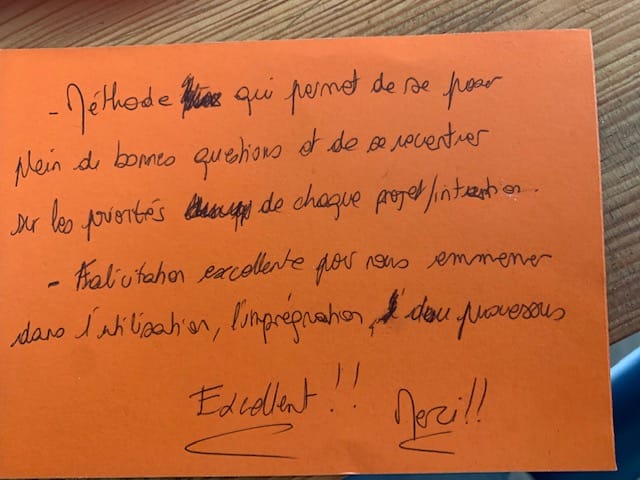 - Méthode qui permet de se poser
plein de bonnes questions et de se recentrer
sur les priorités de chaque projet/intention.
- Facilitation excellente pour nous emmener
dans l'utilisation, l'imprégnation, du processus
Excellent !! Merci !!